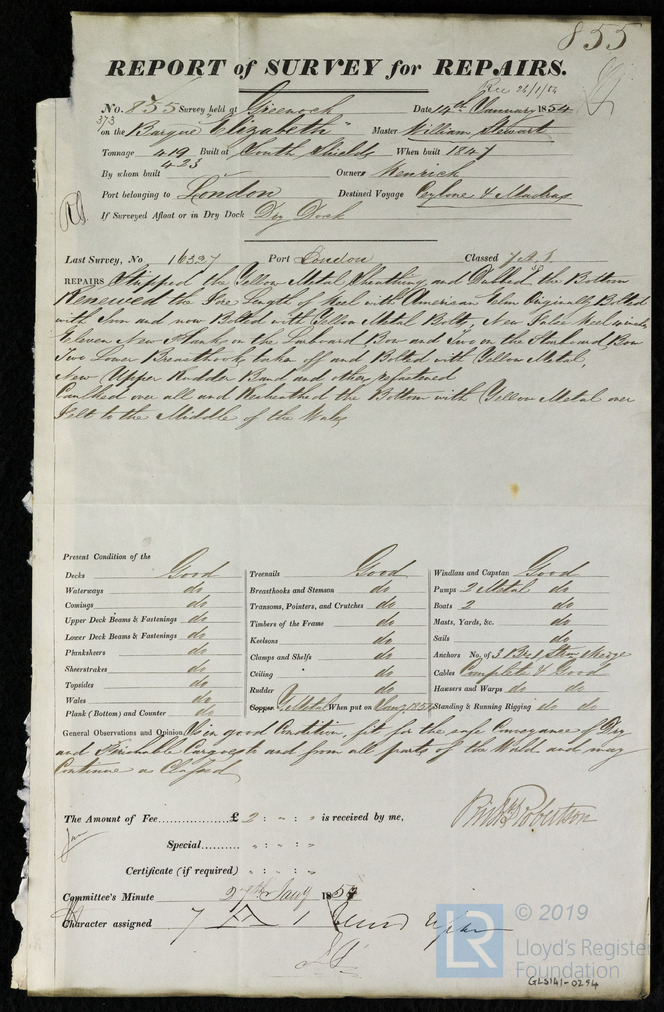 855
REPORT of SURVEY for REPAIRS.
Rec 26/1/54
No. 855 Survey held at Greenock Date 14th January 1854
373
on the Barque "Elizabeth" Master William Stewart
Tonnage 419 Built at South Shields When built 1847
423
By whom built Owners Henrich
Port belonging to London Destined Voyage Ceylone & Madras
If Surveyed Afloat or in Dry Dock Dry Dock
Last Survey, No 16327 Port London Classed 7 A.1.
REPAIRS Stripped the Yellow Metal Sheathing and Dubbed the Bottom
Renewed the Fore Length of Keel with American Elm Originally Bolted
with Iron and now Bolted with Yellow Metal Bolts, New False Keel
Eleven New Planks on the Larboard Bow and Two on the Starboard Bow
Two Lower Breasthooks taken off and Bolted with Yellow Metal,
New Upper Rudder Band and others refastened
Caulked over all and Resheathed the Bottom with Yellow Metal over
Felt to the Middle of the Wales
Present Condition of the
Decks Good
Waterways do
Comings do
Upper Deck Beams & Fastenings do
Lower Deck Beams & Fastenings do
Planksheers do
Sheerstrakes do
Topsides do
Wales do
Plank (Bottom) and Counter do
Treenails Good
Breasthooks and Stemson do
Transoms, Pointers, and Crutches do
Timbers of the Frame do
Keelsons do
Clamps and Shelfs do
Ceiling do
Rudder do
Copper Y Metal When put on Jany 1854
Windlass and Capstan Good
Pumps 2 Metal do
Boats 2 do
Masts, Yards, &c. do
Sails do
Anchors No. of 3 B & 1 Stream & Kedge
Cables Complete & Good
Hawsers and Warps do do
Standing & Running Rigging do do
General Observations and Opinion Is in good Condition, fit for the safe Conveyance of Dry
and Perishable Cargoes to and from all parts of the World and may
Continue as Classed
The Amount of Fee £ 2 : " : " is received by me,
Robertson
Special " : " : "
Certificate (if required) " : " : "
Committee's Minute 27th Jany 1854
Character assigned 7 A 1
© 2019
LR
Lloyd's Register
Foundation
GLS141-0294